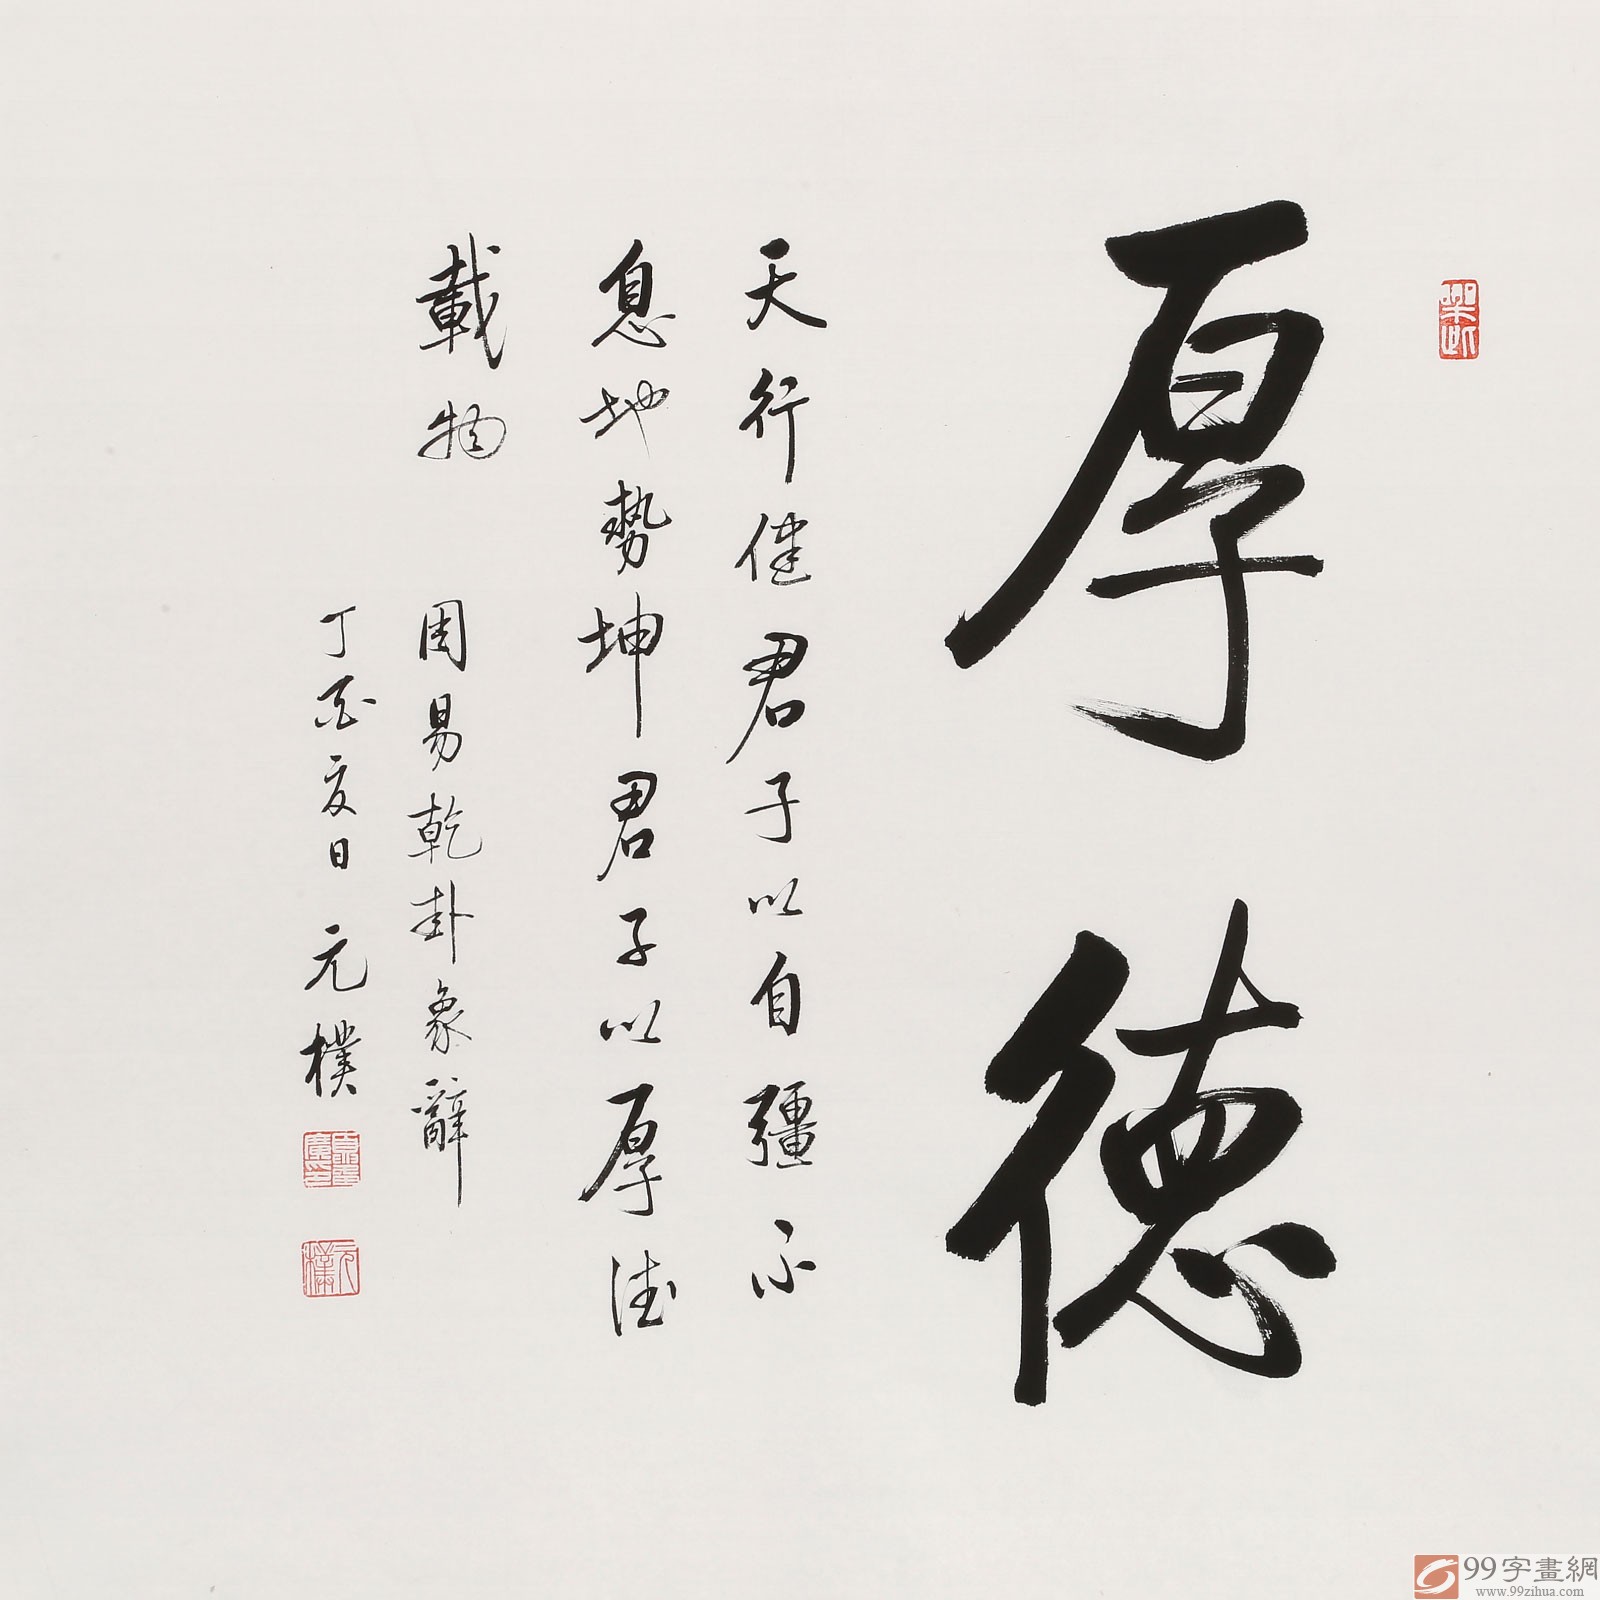 厚德
天行健君子以自彊不
息地勢坤君子以厚德
載物
周易乾卦象辭
丁酉夏日元樸
元樸
99字畫網
www.99zihua.com